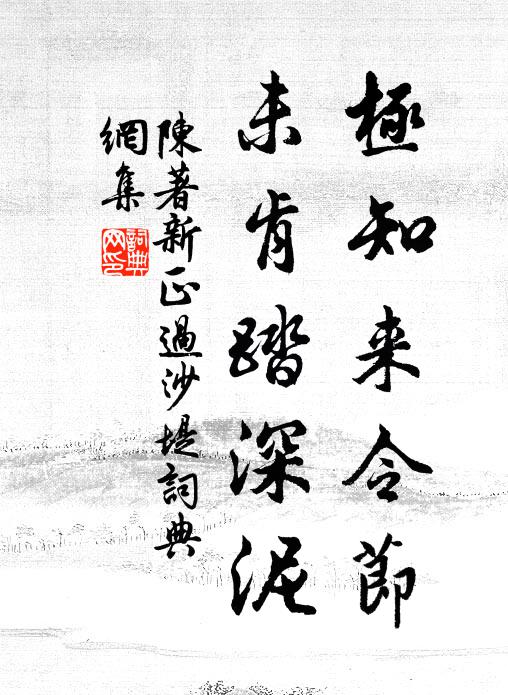 極知来令節
未肯踏深泥
陳著新正過沙堤詞典
網集
詞典网印